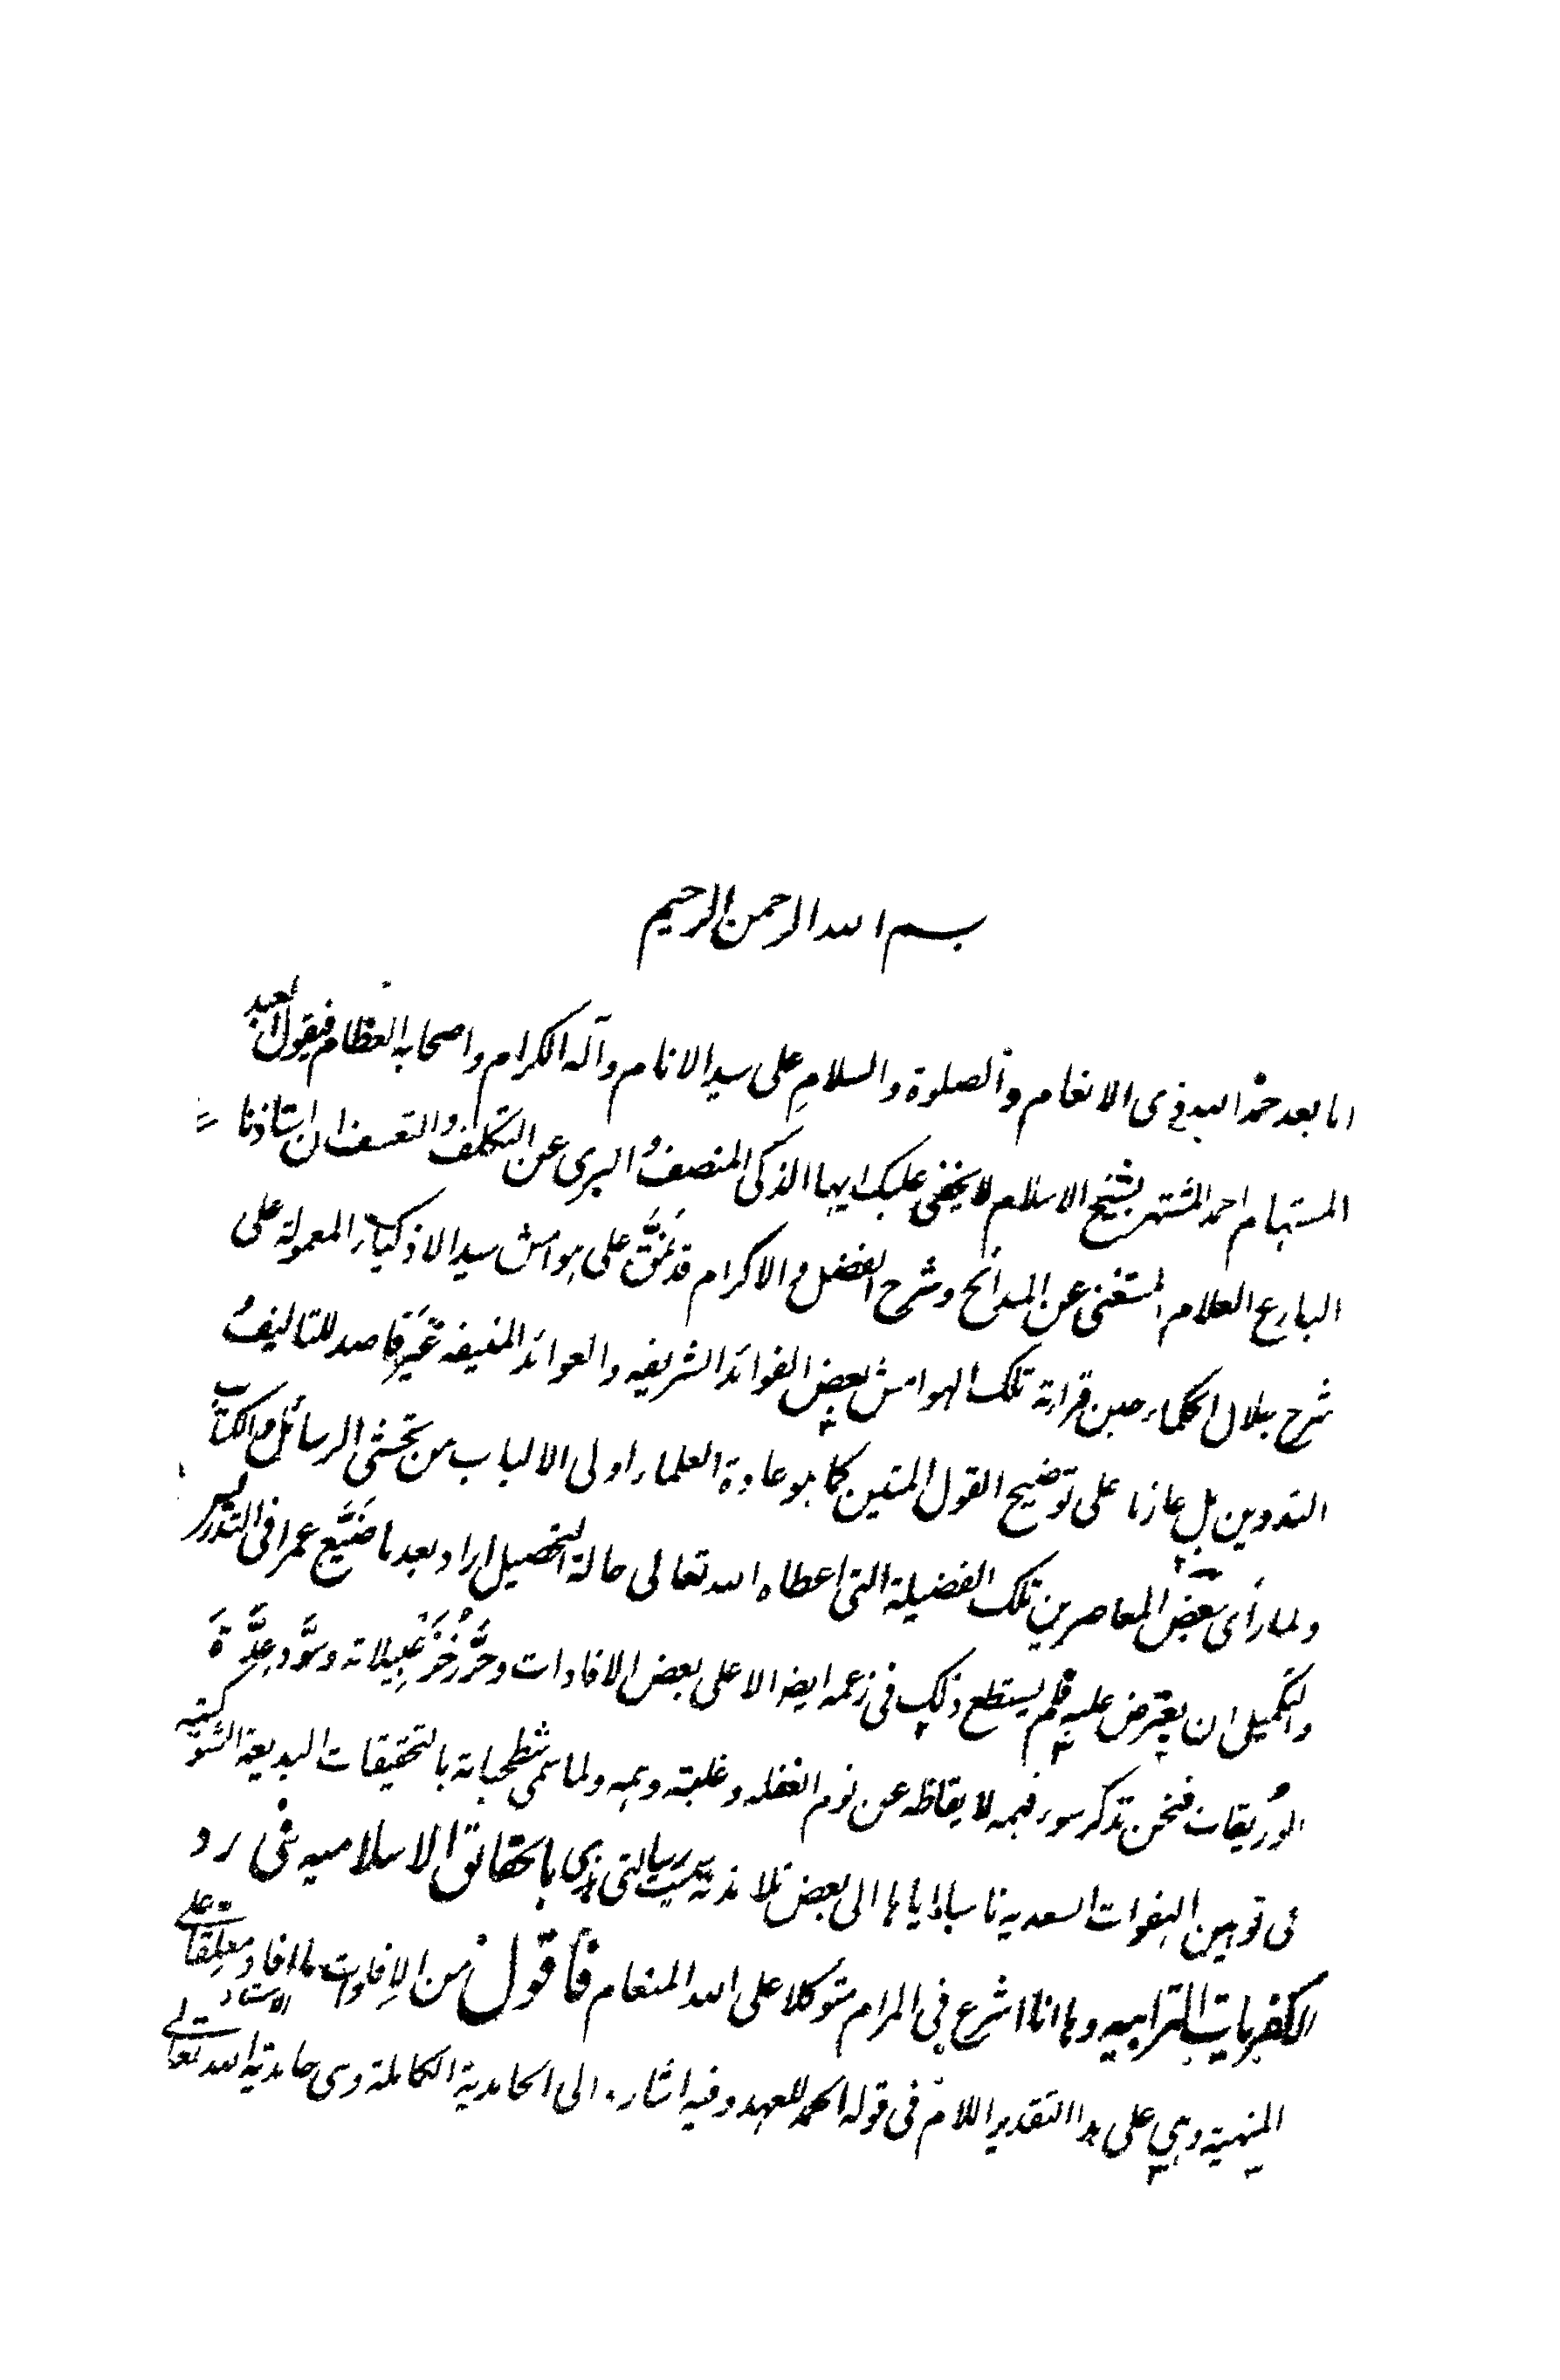 بسم الله الرحمن الرحيم
اما بعد حمد الله ذى الانعام والصلوة والسلام على سيد الانام وآله الكرام واصحابه العظام فيقول العبد
المستهام احمد المشتهر بشيخ الاسلام لا يخفى عليك ايها الذكى المنصف البرى عن التكلف والتعسف ان استاذنا
البارع العلام المستغنى عن المدائح وشرح الفضل والاكرام قد نمَّق على هوامش سيد الاذكياء المعمولة على
شرح جلال الحكماء حين قراءة تلك الهوامش بعض الفوائد الشريفه والعوائد المنيفه غير قاصد للتاليف
التدوين بل عازما على توضيح القول المتين كما هو عادة العلماء اولى الالباب من تحشى الرسائل والكتاب
ولما رأى بعض المعاصرين تلك الفضيلة التى اعطاه الله تعالى حالة التحصيل اراد بعد ما ضيَّع عمرا فى التدريس
والتكميل ان يعترض عليه فلم يستطع ذلك فى زعمه ايضا الا على بعض الافادات وحرَّر خُزَعْبِيلاته وسوَّد عِدَّةَ
الوُريقات فنحن نذكر سوء فهمه لايقاظه عن نوم الغفله وغلبته وهمه ولما سمى شطحياته بالتحقيقات البديعة
فى توهين الهفوات السعديه ناسبا اياها الى بعض تلامذته سميت رسالتى هذى بالحقائق الاسلاميه فى رد
الكفريات الترابيه وها انا اشرع فى المرام متوكلا على الله المنعام فأقول من الافادات ما افاد الاستاذ معلقا على
المنهية وهى على هذا التقدير اللام فى قوله الحمد للعهد وفيه اشارة الى الحامدية الكاملة وهى حامدية الله تعالى